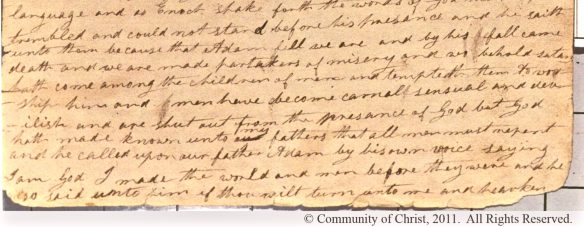 language and as Enoch spake forth the words of God
trembled and could not stand before his presence and he saith
unto them because that Adam fell we are and by his fall came
death and we are made partakers of misery and wo behold satan
hath come among the children of men and tempteth them to wor
ship him and men have become carnal sensual and dev
-ilish and are shut out from the presance of God but God
hath made known unto my fathers that all men must repent
and he called upon our father Adam by his own voice saying
I am God I made the world and men before they were and he
so said unto him if thou wilt turn unto me and hearken
© Community of Christ, 2011. All Rights Reserved.